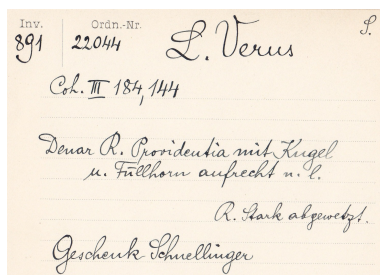 Inv. Ordn.-Nr. S.
891 22044 L. Verus
Coh. III 184, 144
Denar R. Providentia mit Kugel
u. Füllhorn aufrecht n. l.
R. Stark abgewetzt.
Geschenk Schnellinger